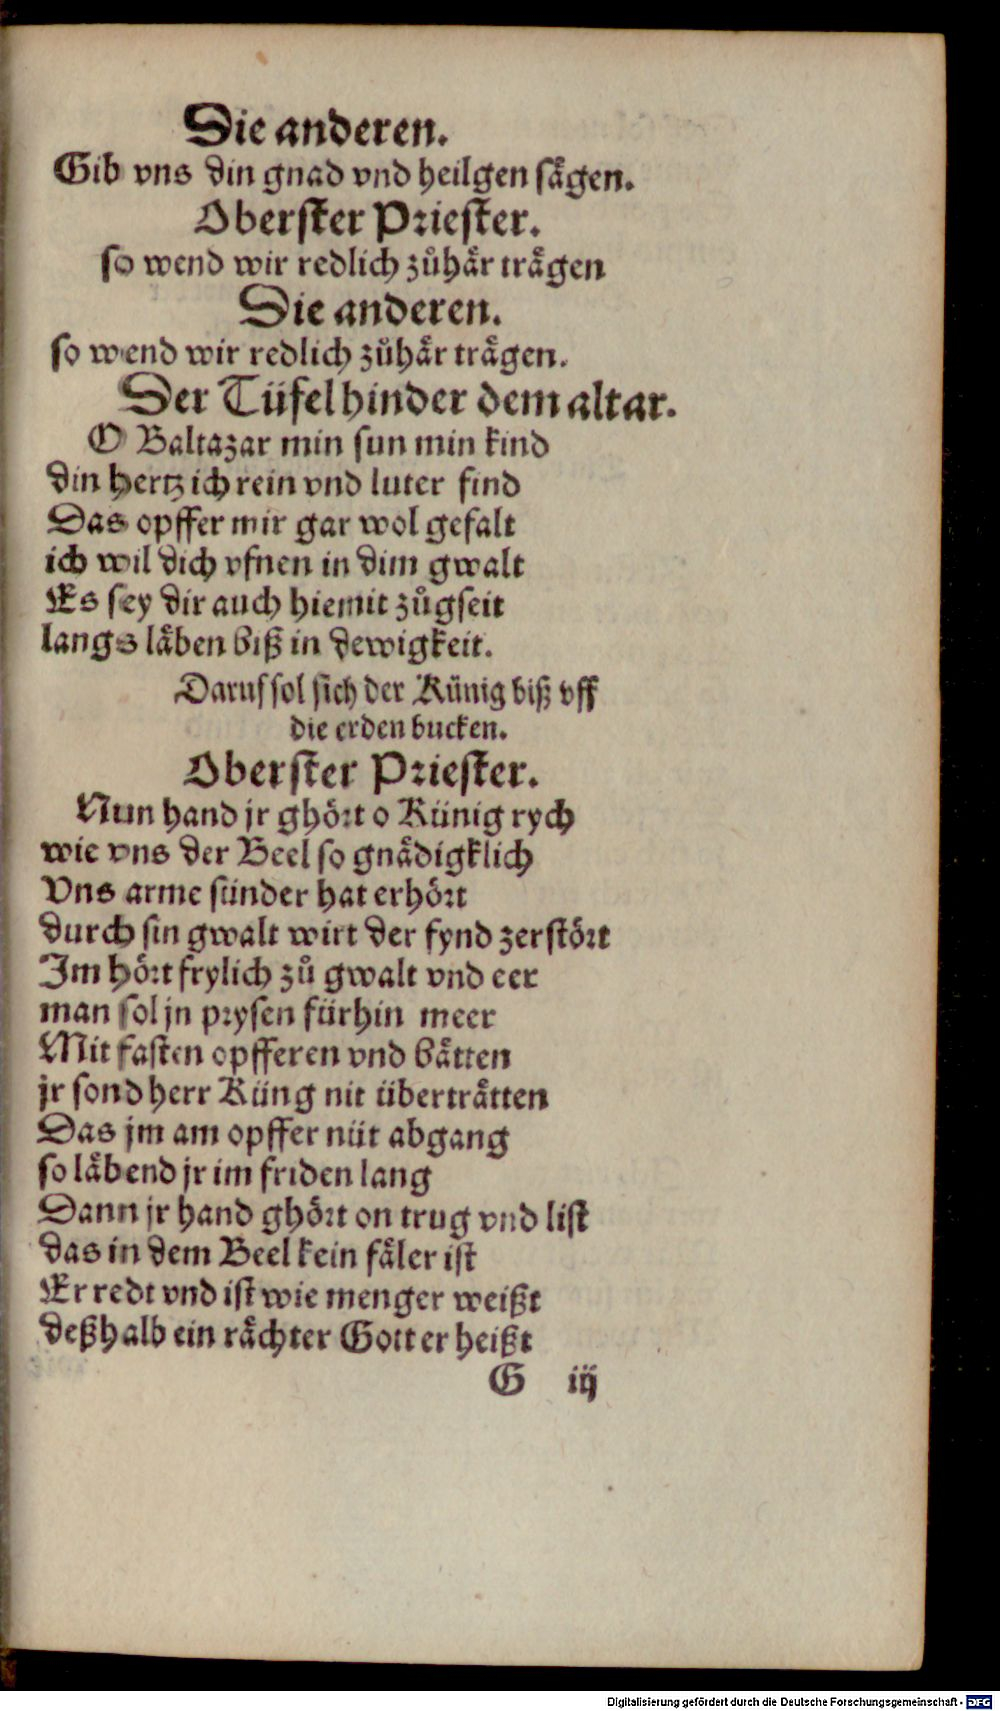 Die anderen.
Gib vns din gnad vnd heilgen sågen.
Oberster Priester.
so wend wir redlich zůhår trågen
Die anderen.
so wend wir redlich zůhår trågen.
Der Tüfel hinder dem altar.
O Baltazar min sun min kind
din hertz ich rein vnd luter find
Das opffer mir gar wol gefalt
ich wil dich vfnen in dim gwalt
Es sey dir auch hiemit zůgseit
langs låben biß in dewigkeit.
Daruf sol sich der Künig biß vff
die erden bucken.
Oberster Priester.
Nun hand jr ghört o Künig rych
wie vns der Beel so gnådigklich
Vns arme sünder hat erhört
durch sin gwalt wirt der fynd zerstört
Im hört frylich zů gwalt vnd eer
man sol jn prysen fürhin meer
Mit fasten opfferen vnd båtten
jr sond herr Küng nit übertråtten
Das jm am opffer nüt abgang
so låbend jr im friden lang
Dann jr hand ghört on trug vnd list
das in dem Beel kein fåler ist
Er redt vnd ist wie menger weißt
deßhalb ein råchter Gott er heißt
G iij
Digitalisierung gefördert durch die Deutsche Forschungsgemeinschaft - DFG